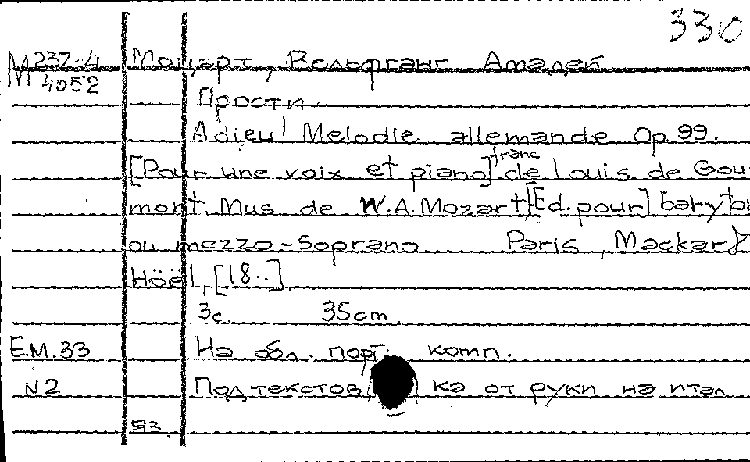 330
М 237-4 Моцарт, Вольфганг Амадей
4052
Прости.
Adieu! Melodie allemande Op. 99.
[Pour une voix et piano] franc
de Louis de Gour
mont. Mus. de W.A.Mozart. [Ed. pour] baryton
ou mezzo-soprano Paris, Mackar &
Höël, [18..]
3с. 35cm.
Е.М.33 На обл. порт. комп.
N2 Подтекстов ка от руки на итал
яз.